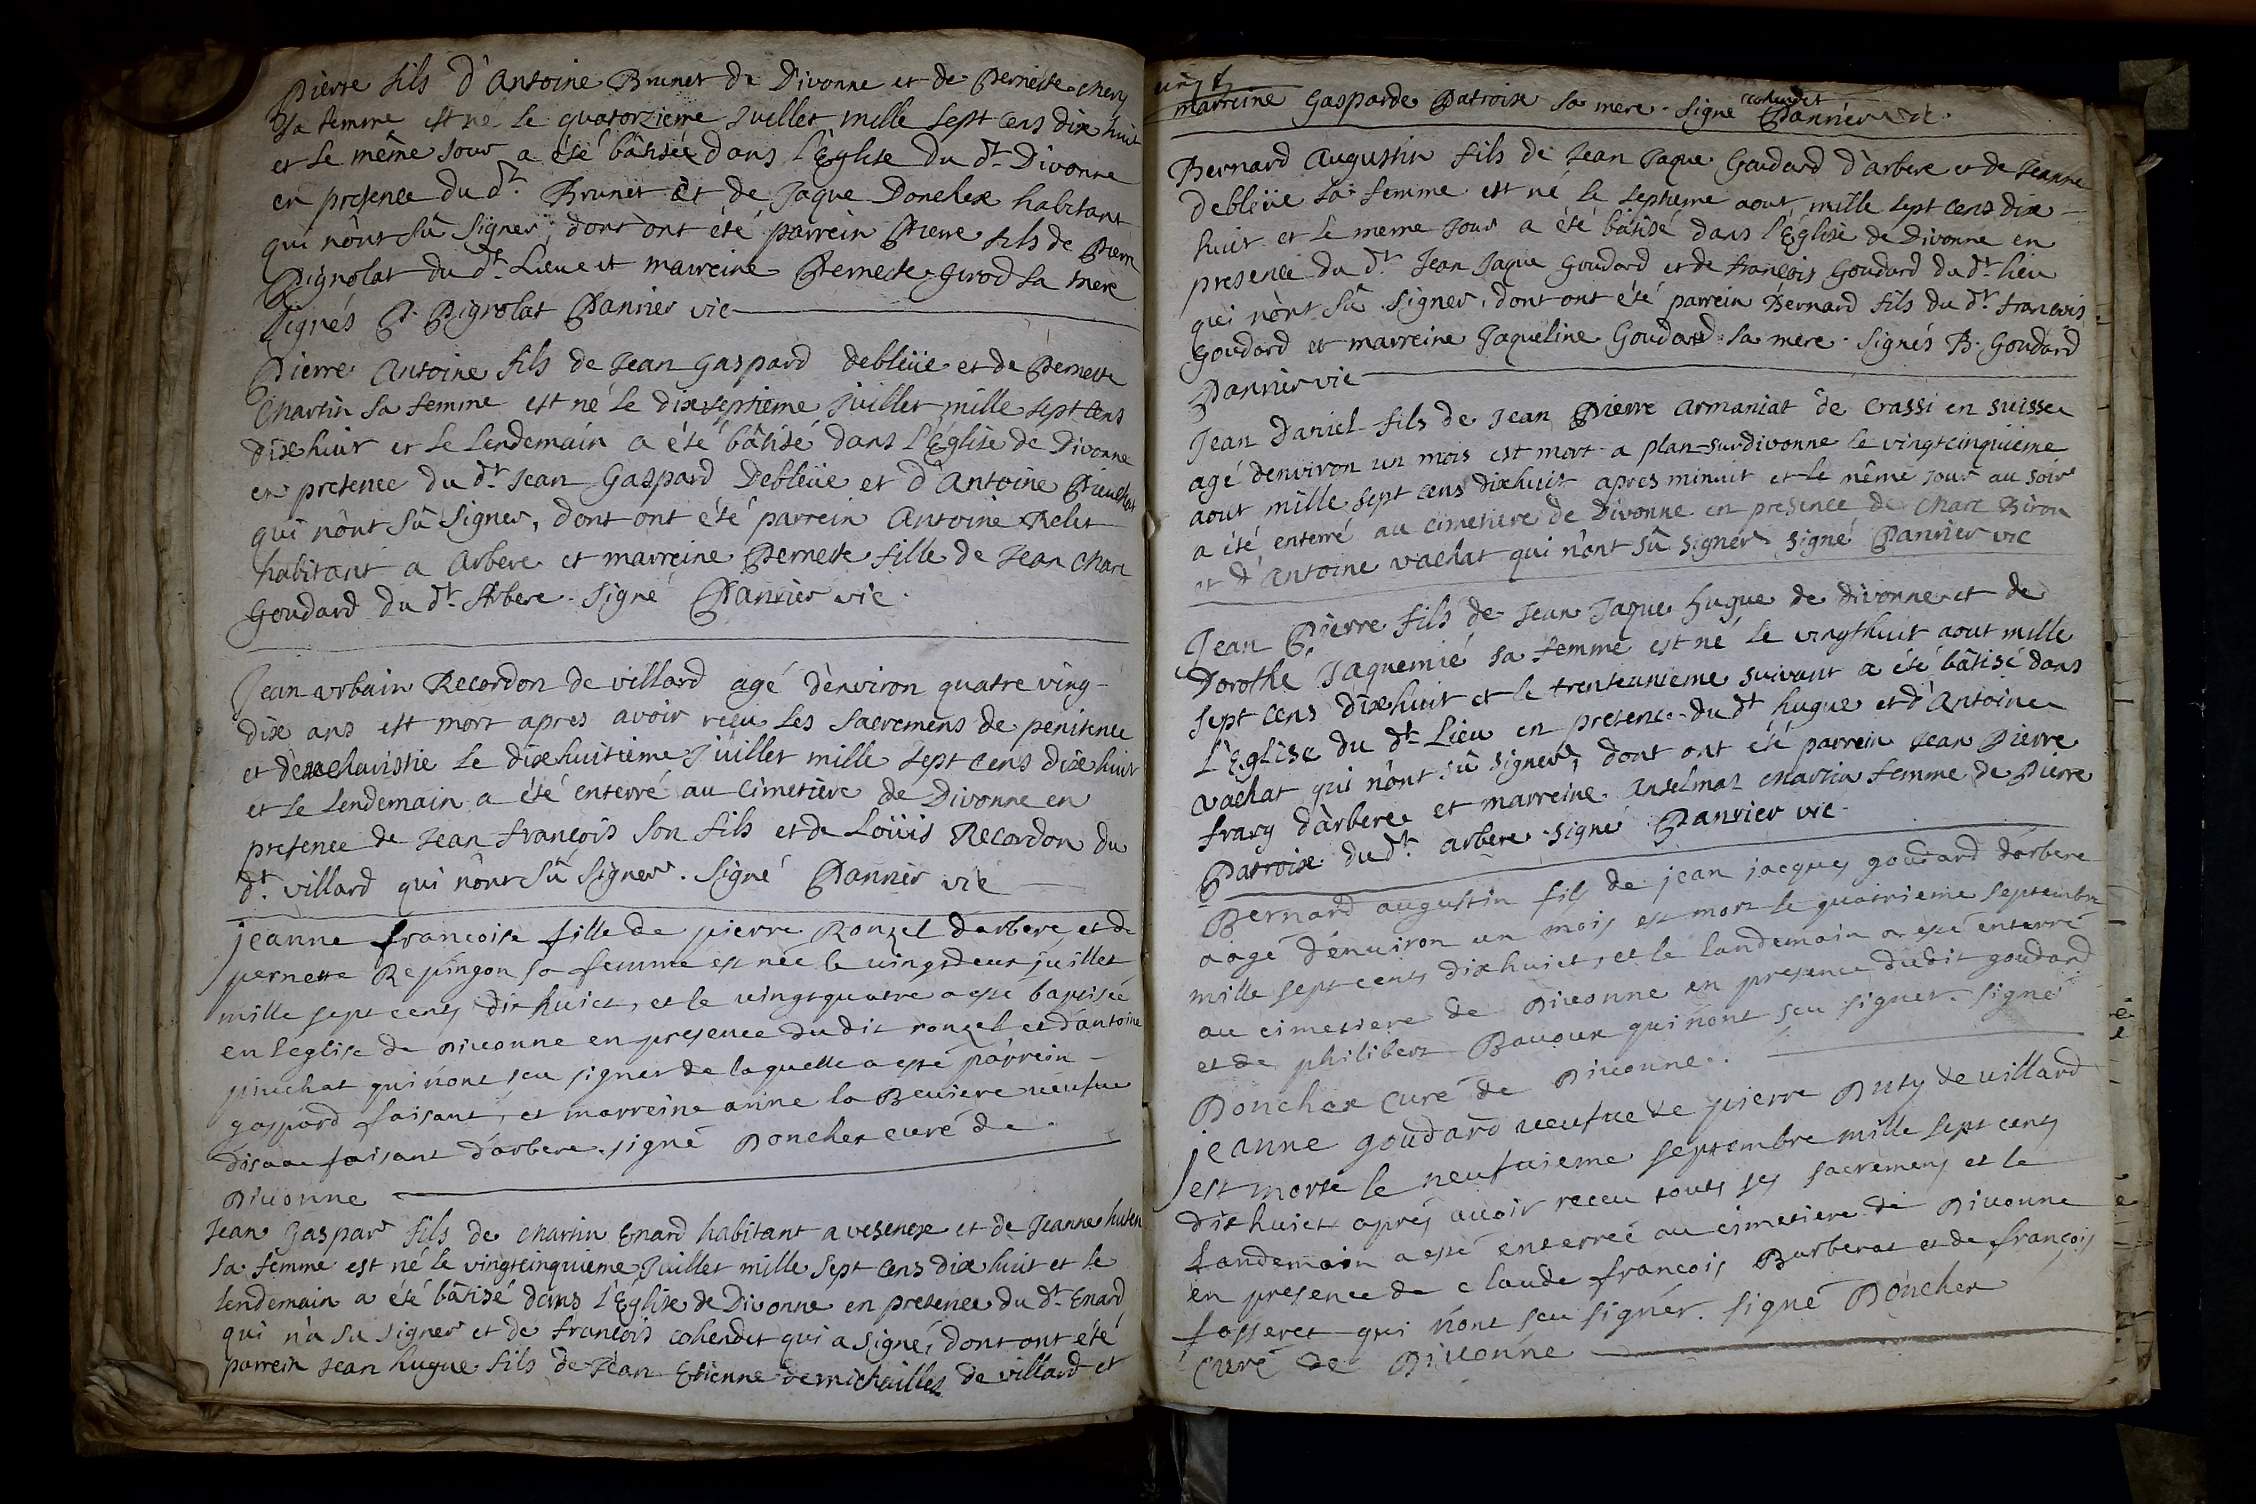 Pierre fils d'Antoine Brunet de Divonne et de Pernette
sa femme est né le quatorzieme Juillet mille sept cens dixhuit
et le même Jour a été bâtisée dans l'Eglise du dt Divonne
en presence du dt. Brunet et de Jaque Donchex habitant
qui n'ont sû signer; dont ont été parrein Pierre fils de Pierre
Pignolat du dt. Lieu et marreine Pernette Girod sa mere
signés P. Pignolat Panrier vic
Pierre Antoine fils de Jean Gaspard Debleüe et de Pernette
Martin sa femme est né le dixseptieme Juillet mille sept cens
dixhuit et le Lendemain a été bâtisé dans l'Eglise de Divonne
en presence du dt Jean Gaspard Debleüe et d'Antoine
qui n'ont sû signer, dont ont été parrein Antoine Relet
habitant a Arbere et marreine Pernette fille de Jean Marc
Goudard du dt. Arbere. Signé Panrier vic.
Jean Urbain Recordon de villard agé d'environ quatre ving-
dix ans est mort apres avoir reçu les sacremens de penitence
et deucharistie le dixhuitieme Juillet mille sept cens dixhuit
et le Lendemain a été enterré au Cimetière de Divonne en
presence de Jean françois son fils et de Loüis Recordon du
dt. villard qui n'ont sû signer. Signé Panrier vic
jeanne francoise fille de pierre Ronzel d'arbere et de
pernette Repingon sa femme est née le vingtdeux juillet
mille sept cents dixhuict, et le vingtquatre a esté baptisée
en l'eglise de Divonne en presence dudit ronzel et d'antoine
pinchat qui n'ont seu signer de laquelle a esté parrein
gaspard faisant, et marreine anne la Beuiere veufue
disaac faisant d'arbere. signé Donchex curé de
Divonne
Jean Gaspar fils de Martin Enard habitant a vesenex et de Jeanne
sa femme est né le vingtcinquieme Juillet mille sept cens dix huit et le
lendemain a été bâtisé dans l'Eglise de Divonne en presence du dt. Enard
qui n'a su signer et de françois cohendet qui a signé, dont ont été
parrein Jean hugue fils de Jean Etienne demichaillez de villard et
marreine Gasparde Patroix sa mere. Signé cohendet Panrier vic.
Bernard Augustin fils de Jean Jaque Goudard d'arbere et de Jeanne
Debleüe sa femme est né le septieme aout mille sept cens dix
huit et le meme Jour a été bâtisé dans l'Eglise de Divonne en
presence du dt. Jean Jaque Goudard et de françois Goudard du dt. lieu
qui n'ont sû signer, dont ont été parrein Bernard fils du dt. françois
Goudard et marreine Jaqueline Goudard sa mere. Signés B. Goudard
Panrier vic
Jean Daniel fils de Jean Pierre Armaniat de Crassi en Suisse
agé denviron un mois est mort a plan-sur divonne le vingtcinquieme
aout mille sept cens dixhuit apres minuit et le même Jour au soir
a été enterré au Cimetiere de Divonne en presence de Marc Biron
et d'Antoine vachat qui n'ont sû signer signé Panrier vic
Jean Pierre fils de Jean Jaque hugue de divonne et de
Dorothé Jaquemié sa femme est né le vingthuit aout mille
sept cens dixhuit et le trenteunieme suivant a été bâtisé dans
l'Eglise du dt. Lieu en presence du dt hugue et d'Antoine
vachat qui n'ont sû signer, dont ont été parrein Jean Pierre
frary d'arbere et marreine Anselmaz Martin femme de Pierre
Patroix du dt. arbere. Signé Panrier vic.
Bernard augustin fils de jean jacques goudard d'arbere
aagé d'enuiron un mois est mort le quatrieme septembre
mille sept cents dixhuict, et le landemain a esté enterré
au cimetiere de Divonne en presence dudit goudard
et de philibert Bauoux qui n'ont seu signer. Signé
Donchex Curé de Divonne.
jeanne goudard veufue de pierre Duty de villard
est morte le neufuieme septembre mille sept cents
dixhuict apres auoir receu touts ses sacremens et le
landemain a esté enterreé au cimetiere de Diuonne
en presence de claude francois Barberat et de françois
fosseret qui n'ont seu signer. signé Donchex
Curé de Diuonne